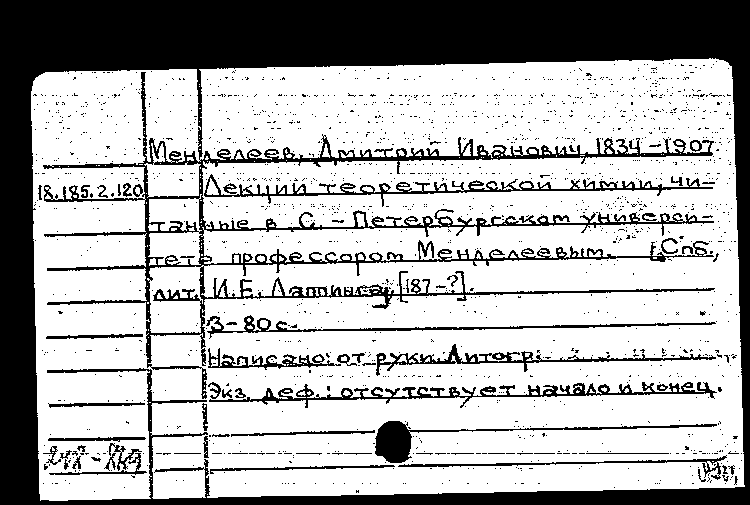 Менделеев, Дмитрий Иванович, 1834-1907
18.185.2.120
Лекции теоретической химии, чи-
танные в С.-Петербургском универси-
тете профессором Менделеевым. [Спб.,
лит. И.Е. Лаппинга, [187-?].
3-80 с.
Написано: от руки. Литогр.
Экз. деф.: отсутствует начало и конец.